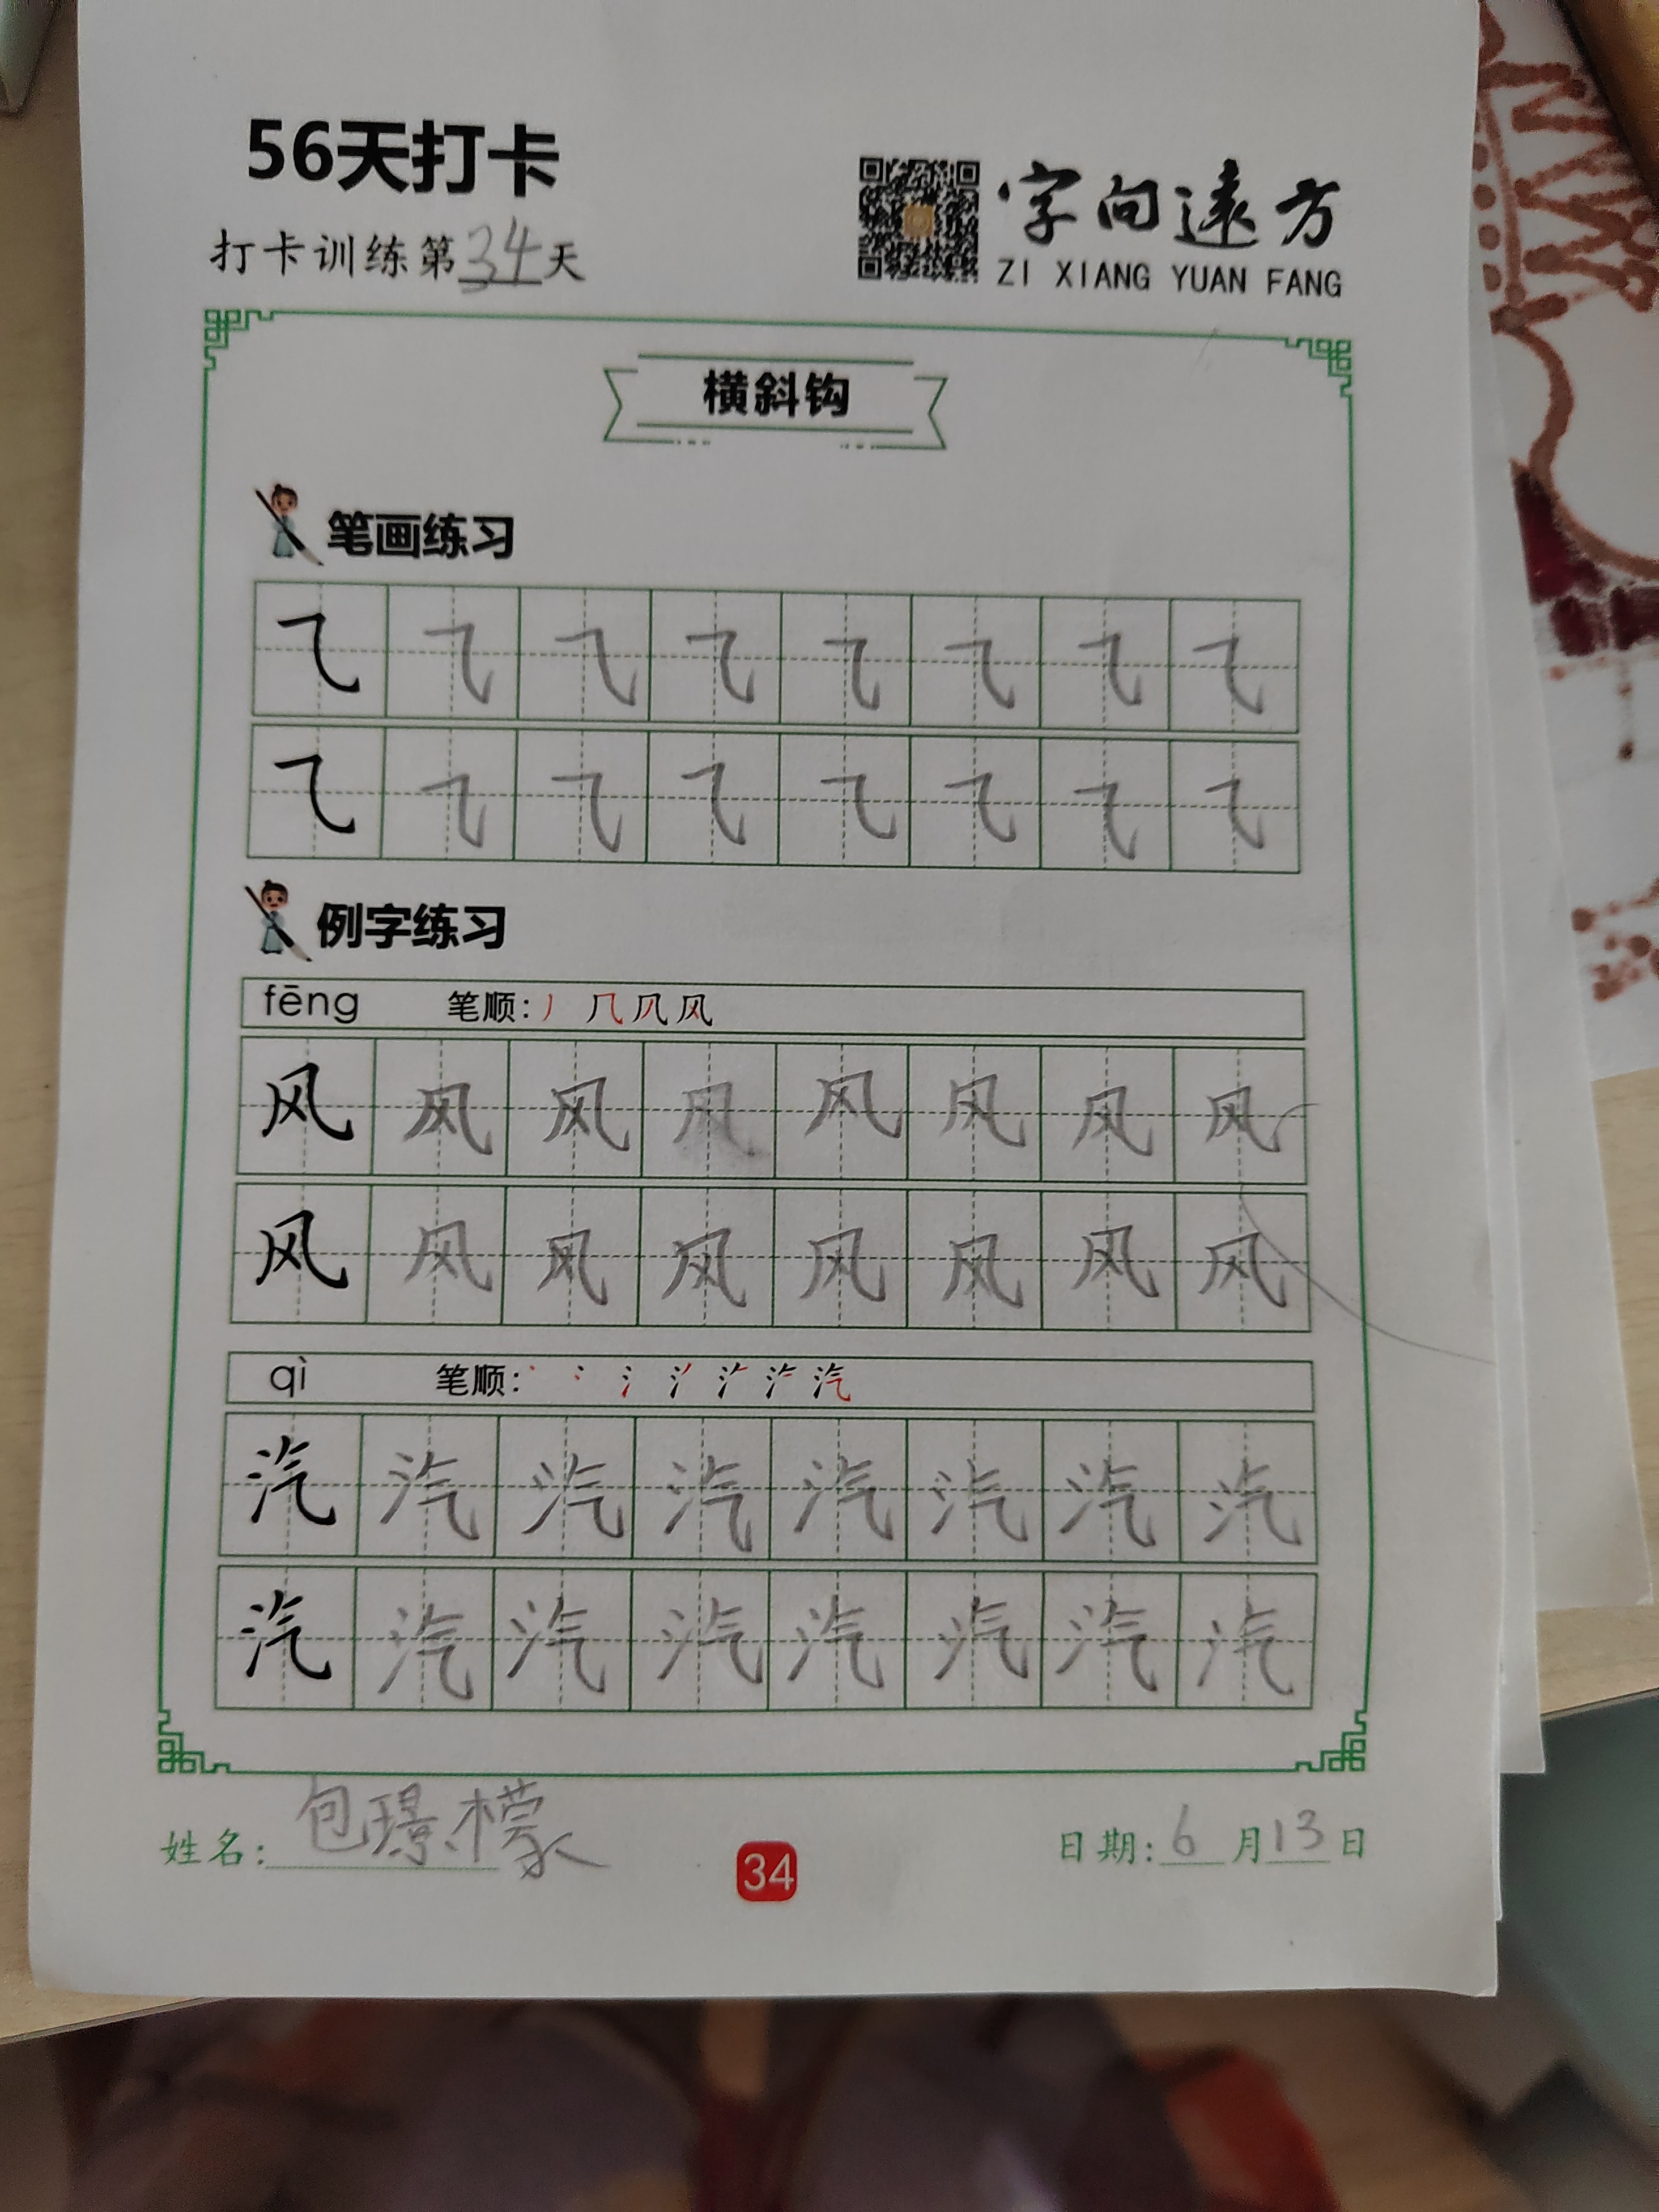 56天打卡
打卡训练第34天
字向遠方
ZI XIANG YUAN FANG
横斜钩
笔画练习
⺄ ⺄ ⺄ ⺄ ⺄ ⺄ ⺄ ⺄
⺄ ⺄ ⺄ ⺄ ⺄ ⺄ ⺄ ⺄
例字练习
fēng 笔顺: 丿 ⺇ 几 风
风 风 风 风 风 风 风 风
风 风 风 风 风 风 风 风
qì 笔顺:
汽 汽 汽 汽 汽 汽 汽 汽
汽 汽 汽 汽 汽 汽 汽 汽
姓名: 包璟檬
34
日期: 6月13日